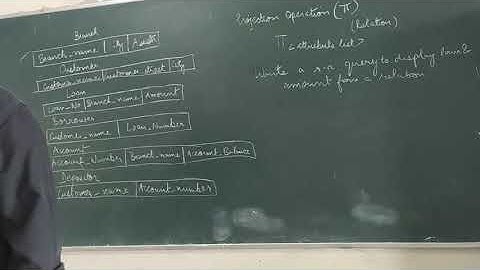 Branch
Branch_name | City | Assets
Customer
Customer_name | customer_street | City
Loan
Loan_No | Branch_name | Amount
Borrower
Customer_name | Loan_Number
Account
Account_Number | Branch_name | Account_Balance
Depositor
Customer_name | Account_number
Projection operation (π)
π <attribute list> (Relation)
Write a r.a query to display loan &
amount from a relation